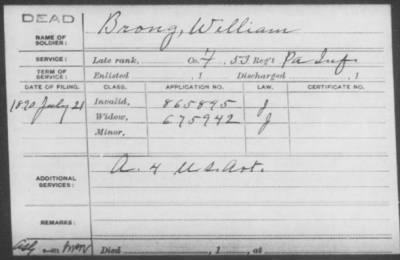 DEAD
NAME OF SOLDIER: Brong, William
SERVICE: Late rank, Co. F, 53 Reg't Pa Inf.
TERM OF SERVICE: Enlisted , 1 Discharged , 1
DATE OF FILING. CLASS. APPLICATION NO. LAW. CERTIFICATE NO.
1890 July 21 Invalid, 865895 J
Widow, 675942 J
Minor,
ADDITIONAL SERVICES: A. 4 U.S. Art.
REMARKS:
Died , 1 , at